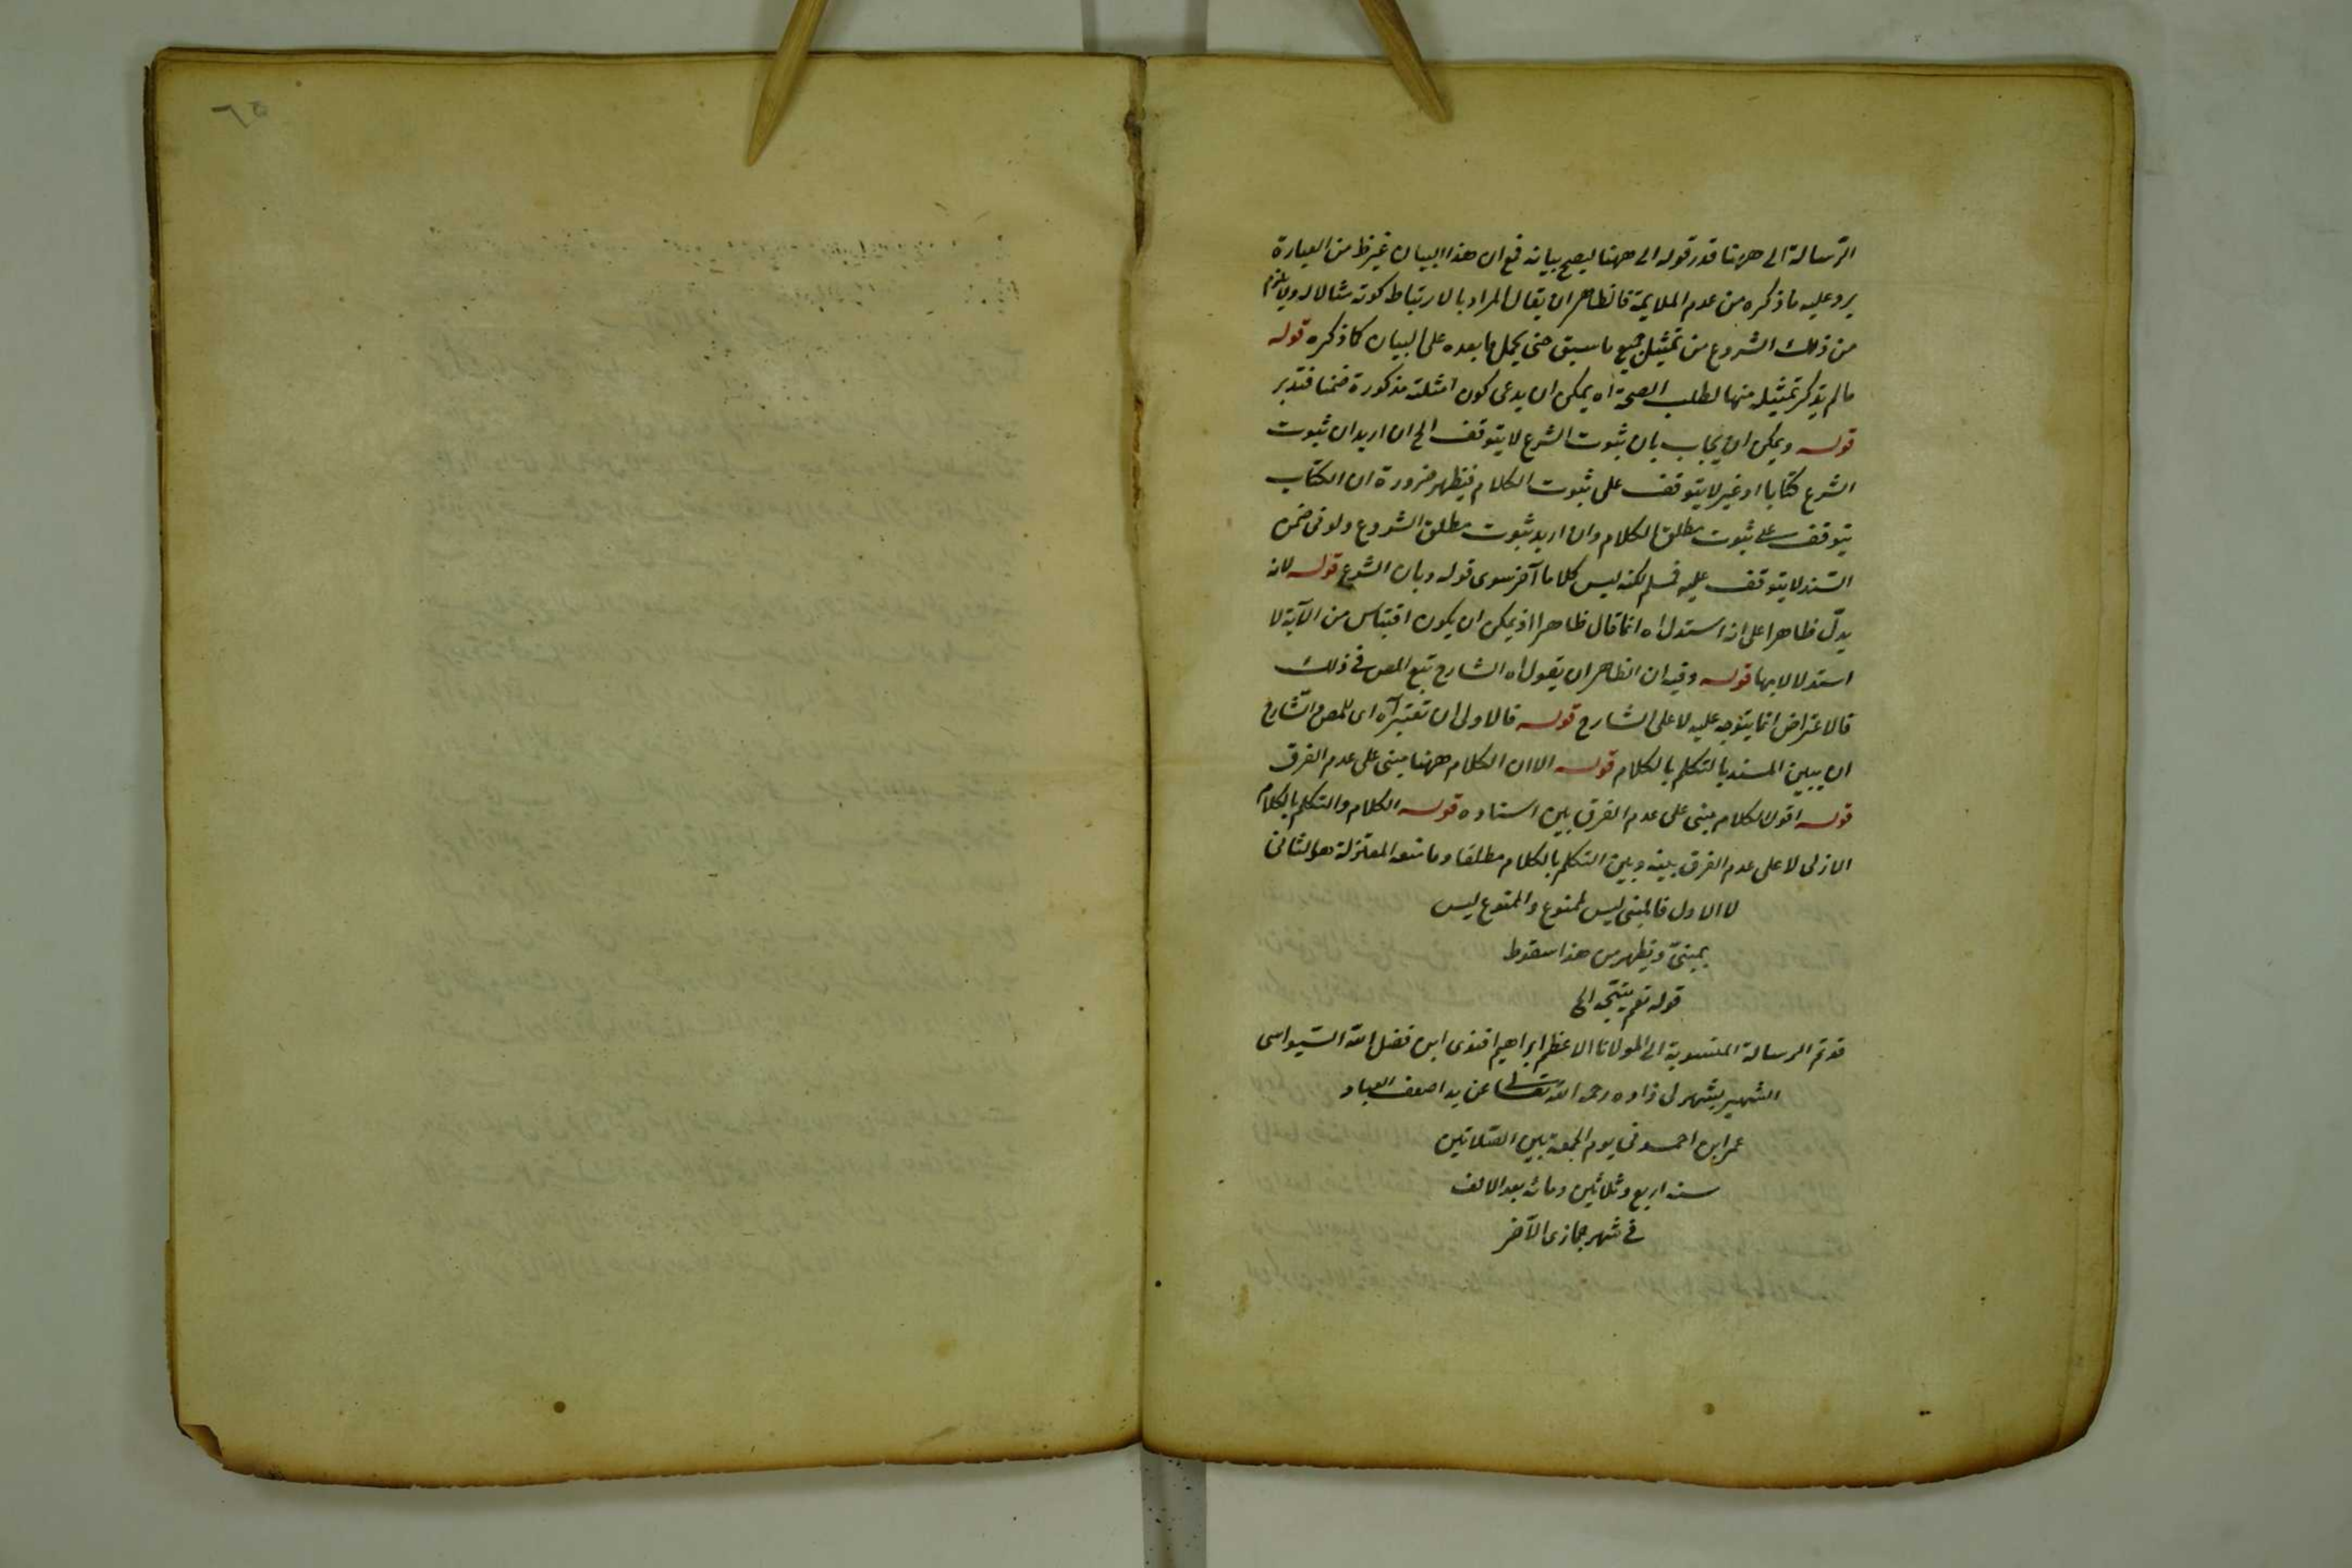 الرسالة الى ههنا قدر قوله الى ههنا ليصح بيانه فمع ان هذا البيان غير ظ من العبارة
يرد عليه ما ذكره من عدم الملايمة فالظاهر ان يقال المراد بالارتباط كونه مثالا له ولا يلزم
من ذلك الشروع من تمثيل جميع ما سبق حتى يحمل ما بعده على البيان كما ذكره قوله
ما لم يذكر تمثيله منها لطلب الصحة اه يمكن ان يدعى كون امثلته مذكورة ضمنا فتدبر
قوله ويمكن ان يجاب بان ثبوت الشرع لا يتوقف الخ ان اريد ان ثبوت
الشرع كتابا او غير لا يتوقف على ثبوت الكلام فيظهر ضرورة ان الكتاب
يتوقف على ثبوت مطلق الكلام وان اريد ثبوت مطلق الشروع ولو في ضمن
السند لا يتوقف عليه فمسلم لكنه ليس كلاما آخر سوى قوله وبان الشرع قوله لانه
يدل ظاهرا على انه استدل اه انما قال ظاهرا اذ يمكن ان يكون اقتباس من الآية لا
استدلالا بها قوله وفيه ان الظاهر ان يقول اه الشارح تبع المص في ذلك
فالاعتراض انما يتوجه عليه لا على الشارح قوله فالاولى ان تعتبر آه اى للمص والشارح
ان يبين المسند بالتكلم بالكلام قوله الا ان الكلام ههنا مبنى على عدم الفرق
قوله اقول الكلام مبنى على عدم الفرق بين اسناده قوله الكلام والتكلم بالكلام
الازلى لا على عدم الفرق بينه وبين التكلم بالكلام مطلقا وما منعه المعتزلة هو الثانى
لا الاول فالمبنى ليس لممنوع والممنوع ليس
بمبنى ويظهر من هذا سقوط
قوله نعم يتجه الخ
قد تم الرسالة المنسوبة الى المولانا الاعظم ابراهيم افندى ابن فضل الله السيواسى
الشهير بشهرلى زاده رحمه الله تعالى عن يد اضعف العباد
عمر ابن احمد فى يوم الجمعة بين الصلاتين
سنه اربع وثلاثين ومائه بعد الالف
فى شهر جمازى الآخر
٦٥